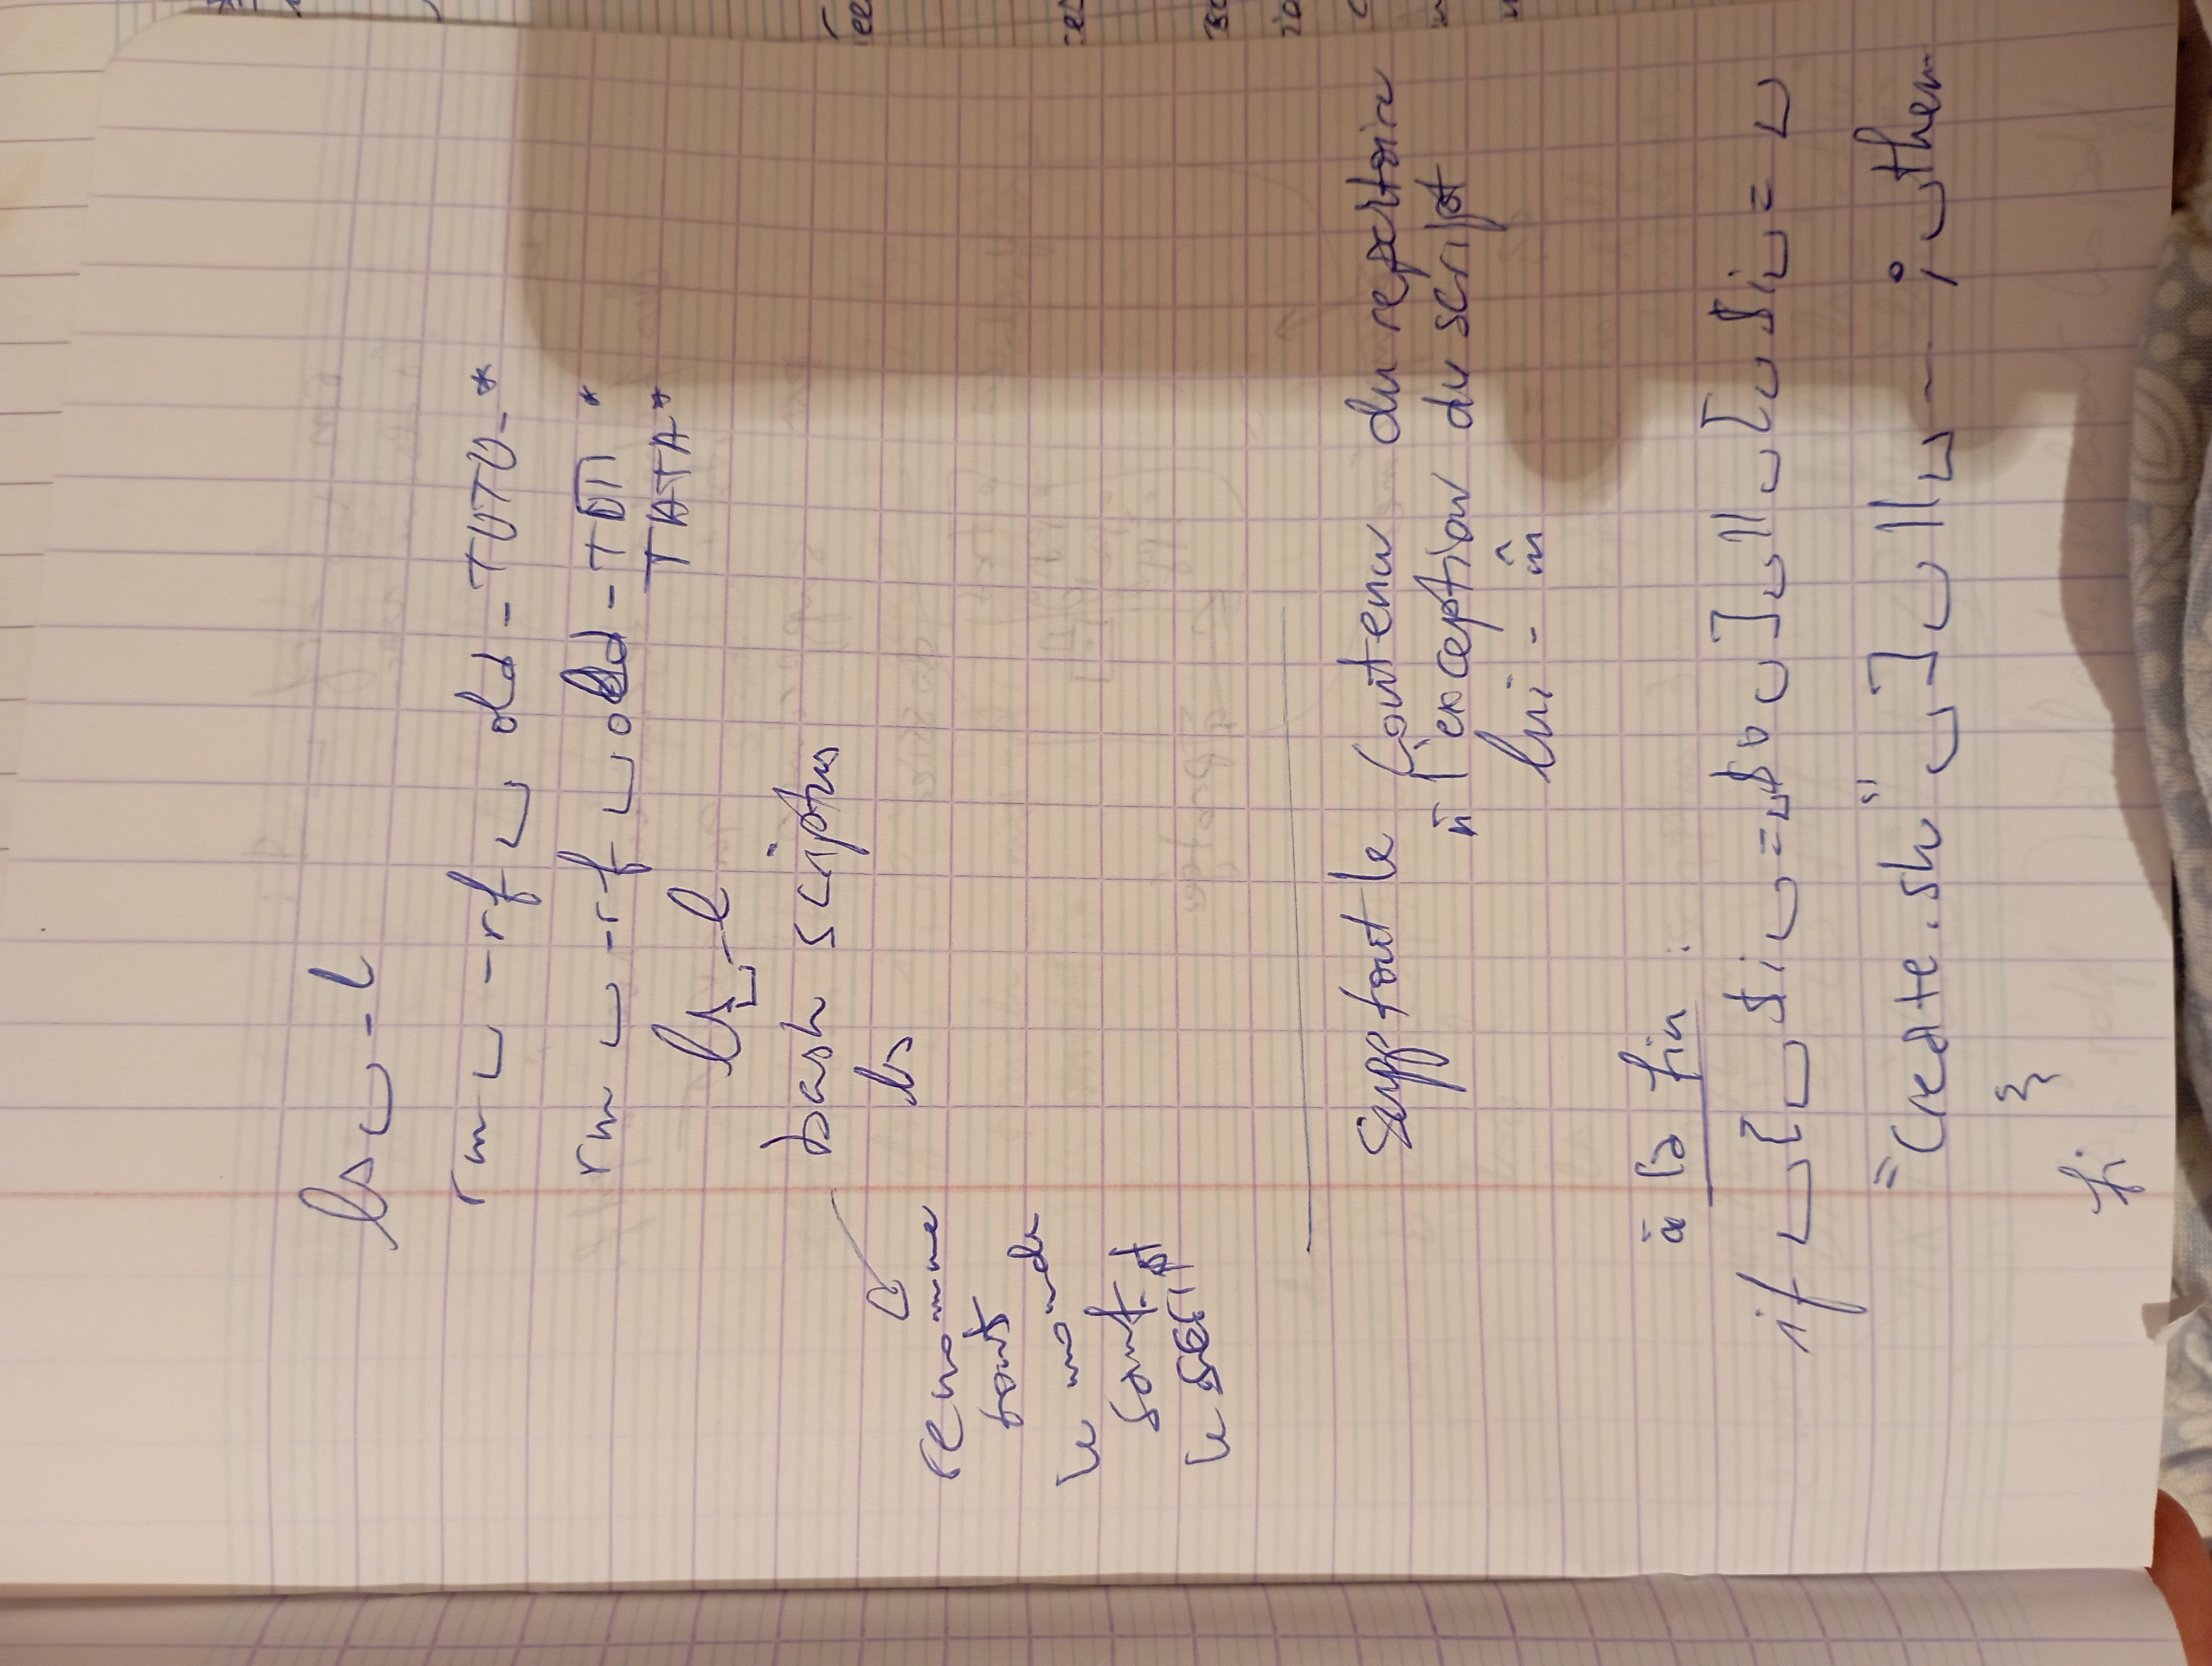 ls ␣ -l
rm ␣ -rf ␣ old-TUTU-*
rm ␣ -rf ␣ old-TITI *
TATA*
ls ␣ -l
bash scriptus
ls
renomme
tout
le monde
sauf
le script
Supp tout le contenu du repertoire
à l'exception du script
lui - m̂
à la fin :
if ␣ [ ␣ $i ␣ = ␣ $0 ␣ ] ␣ || ␣ [ ␣ $i ␣ = ␣
"Create.sh" ␣ ] ␣ || ␣ -- ; ␣ then
fi